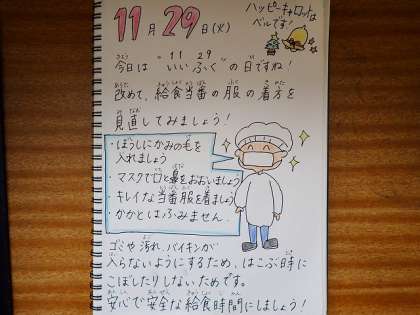 11月29日(火)
ハッピーキャロットは
ベルです!
今日は"いいふく"の日ですね!
改めて、給食当番の服の着方を
見直してみましょう!
・ぼうしにかみの毛を
入れましょう
・マスクで口と鼻をおおいましょう
・キレイな当番服を着ましょう
・かかとはふみません。
ゴミや汚れ、バイキンが
入らないようにするため、はこぶ時に
こぼしたりしないためです。
安心で安全な給食時間にしましょう!